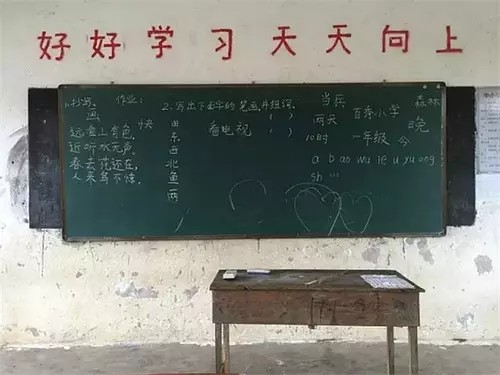 好好学习天天向上
作业:
1.抄写
画
远看山有色,
近听水无声,
春去花还在,
人来鸟不惊。
快
2.写出下面字的笔画并组词。
田 ( )
东 ( )
西
北
鱼
两
看电视
当兵
两天
10时
百秀小学
一年级
今
森林
晚
a b ao wu ie u yu ong
sh